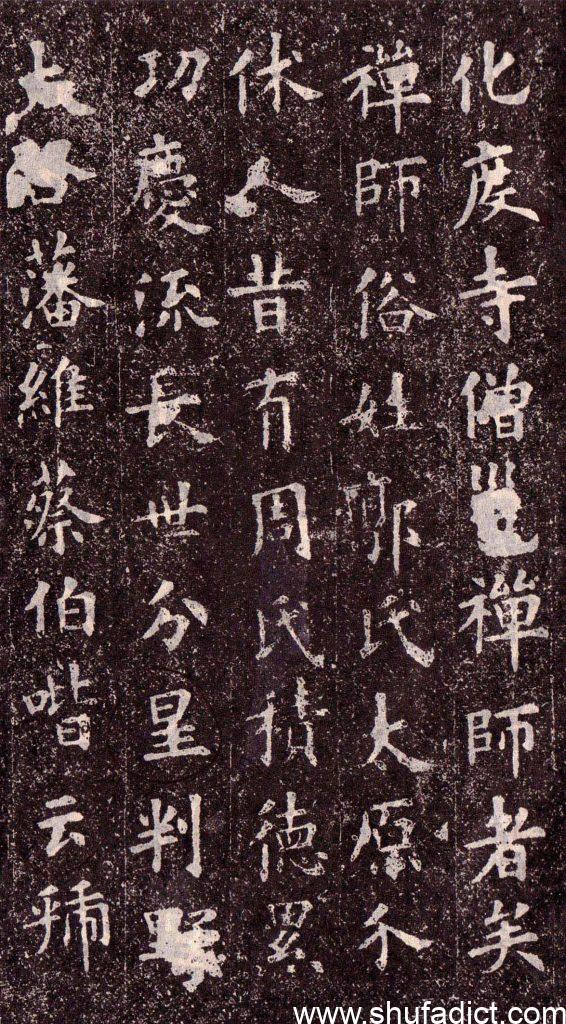 化度寺僧邕禪師者矣
禪師俗姓郭氏太原介
休人昔有周氏積德累
功慶流長世分星判野
藩維蔡伯喈云虢
www.shufadict.com